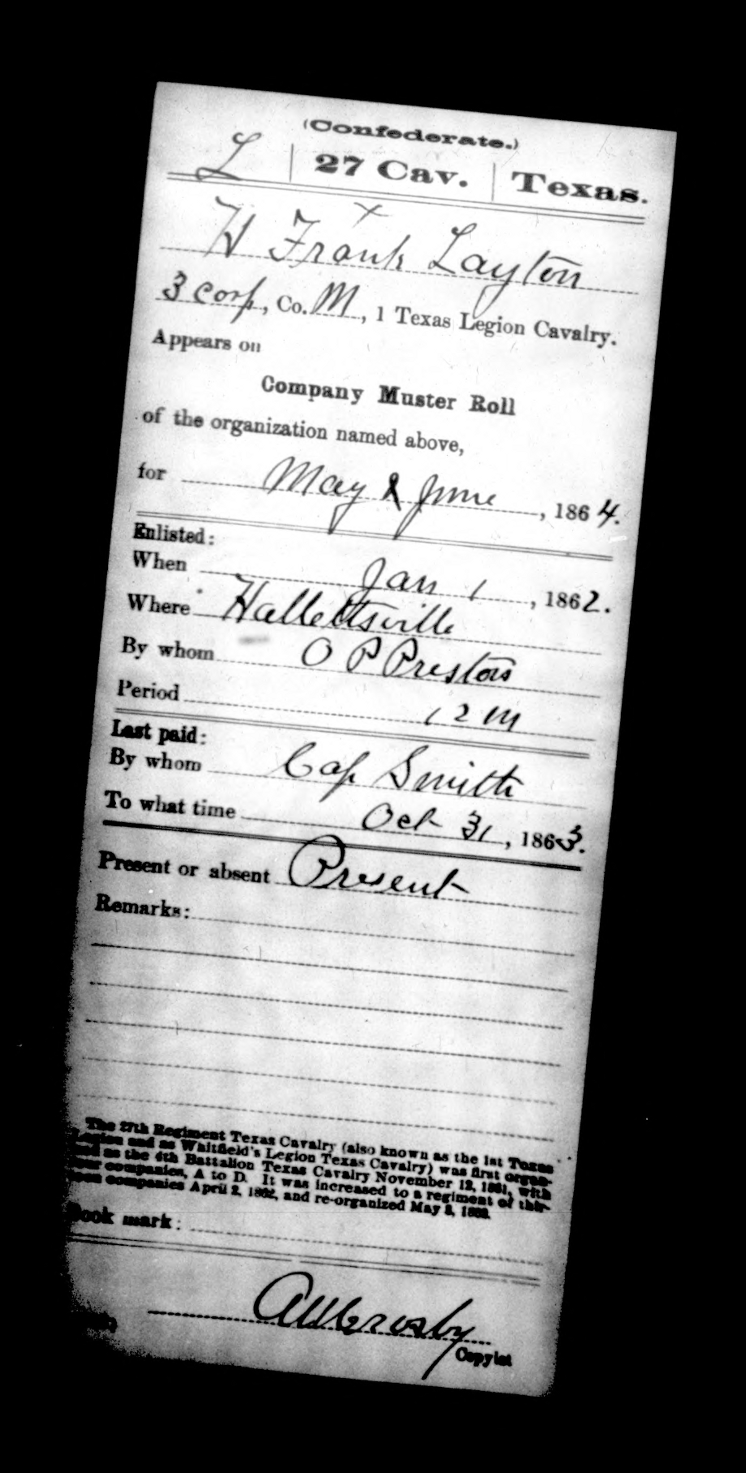 (Confederate.)
L | 27 Cav. | Texas.
x
H Frank Layton
3 Corp, Co. M, 1 Texas Legion Cavalry.
Appears on
Company Muster Roll
of the organization named above,
for May & June, 1864.
Enlisted:
When Jan 1, 1862.
Where Hallettsville
By whom O P Preston
Period 12 M
Last paid:
By whom Cap Smith
To what time Oct 31, 1863.
Present or absent Present
Remarks:
The 27th Regiment Texas Cavalry (also known as the 1st Texas
Legion and as Whitfield's Legion Texas Cavalry) was first organ-
ized as the 4th Battalion Texas Cavalry November 12, 1861, with
four companies, A to D. It was increased to a regiment of thir-
teen companies April 2, 1862, and re-organized May 8, 1862.
Book mark:
Crosby
Copyist